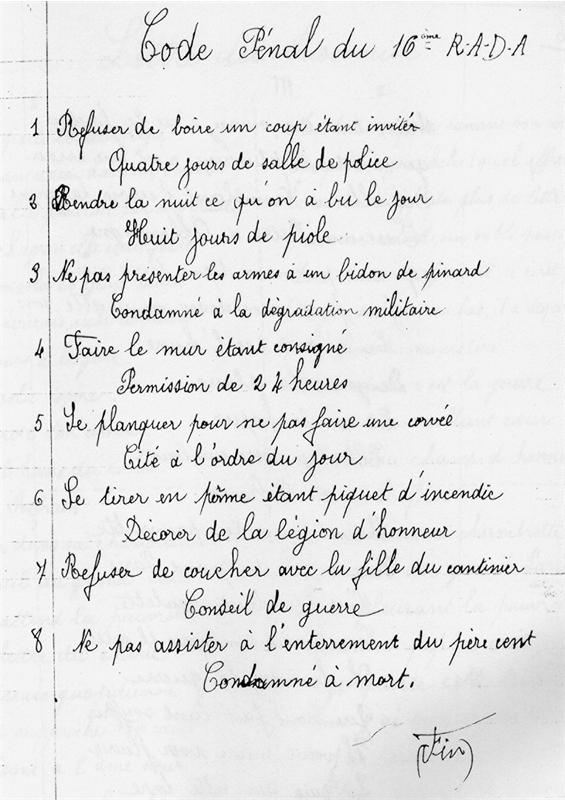 Code Pénal du 16ème R-A-D-A
1 Refuser de boire un coup étant invitér
Quatre jours de salle de police
2 Rendre la nuit ce qu'on à bu le jour
Huit jours de piole
3 Ne pas présenter les armes à un bidon de pinard
Condamné à la dégradation militaire
4 Faire le mur étant consigné
Permission de 24 heures
5 Se planquer pour ne pas faire une corvée
Cité à l'ordre du jour
6 Se tirer en pème étant piquet d'incendie
Décorer de la légion d'honneur
7 Refuser de coucher avec la fille du cantinier
Conseil de guerre
8 Ne pas assister à l'enterrement du père cent
Condamné à mort.
(Fin)